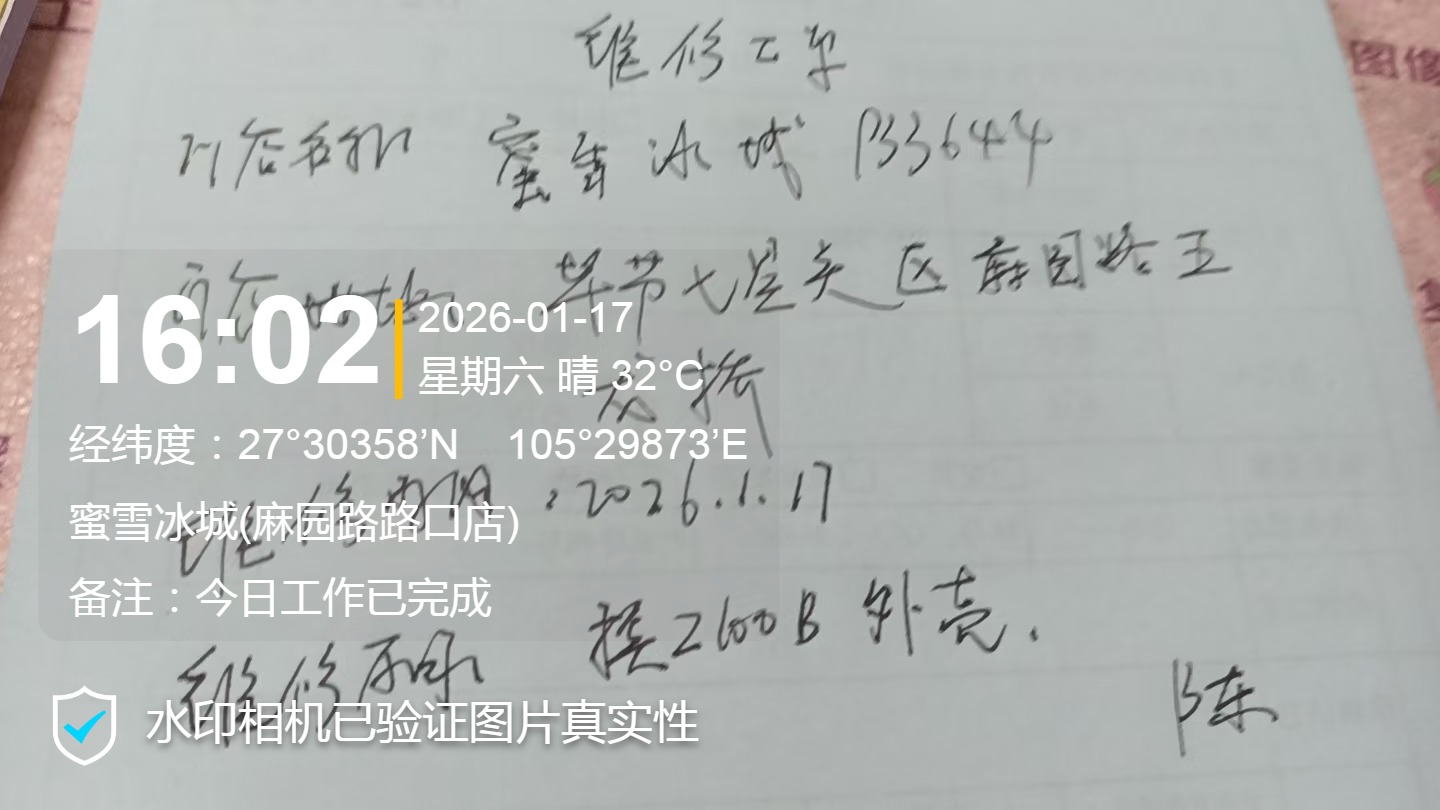 维修工单
门店名称 蜜雪冰城 B33644
门店地址 毕节七星关区麻园路五
16:02
2026-01-17
星期六 晴 32°C
经纬度：27°30358’N 105°29873’E
维修时间：2026.1.17
蜜雪冰城(麻园路路口店)
备注：今日工作已完成
维修 换2600B外壳.
陈
水印相机已验证图片真实性
图像